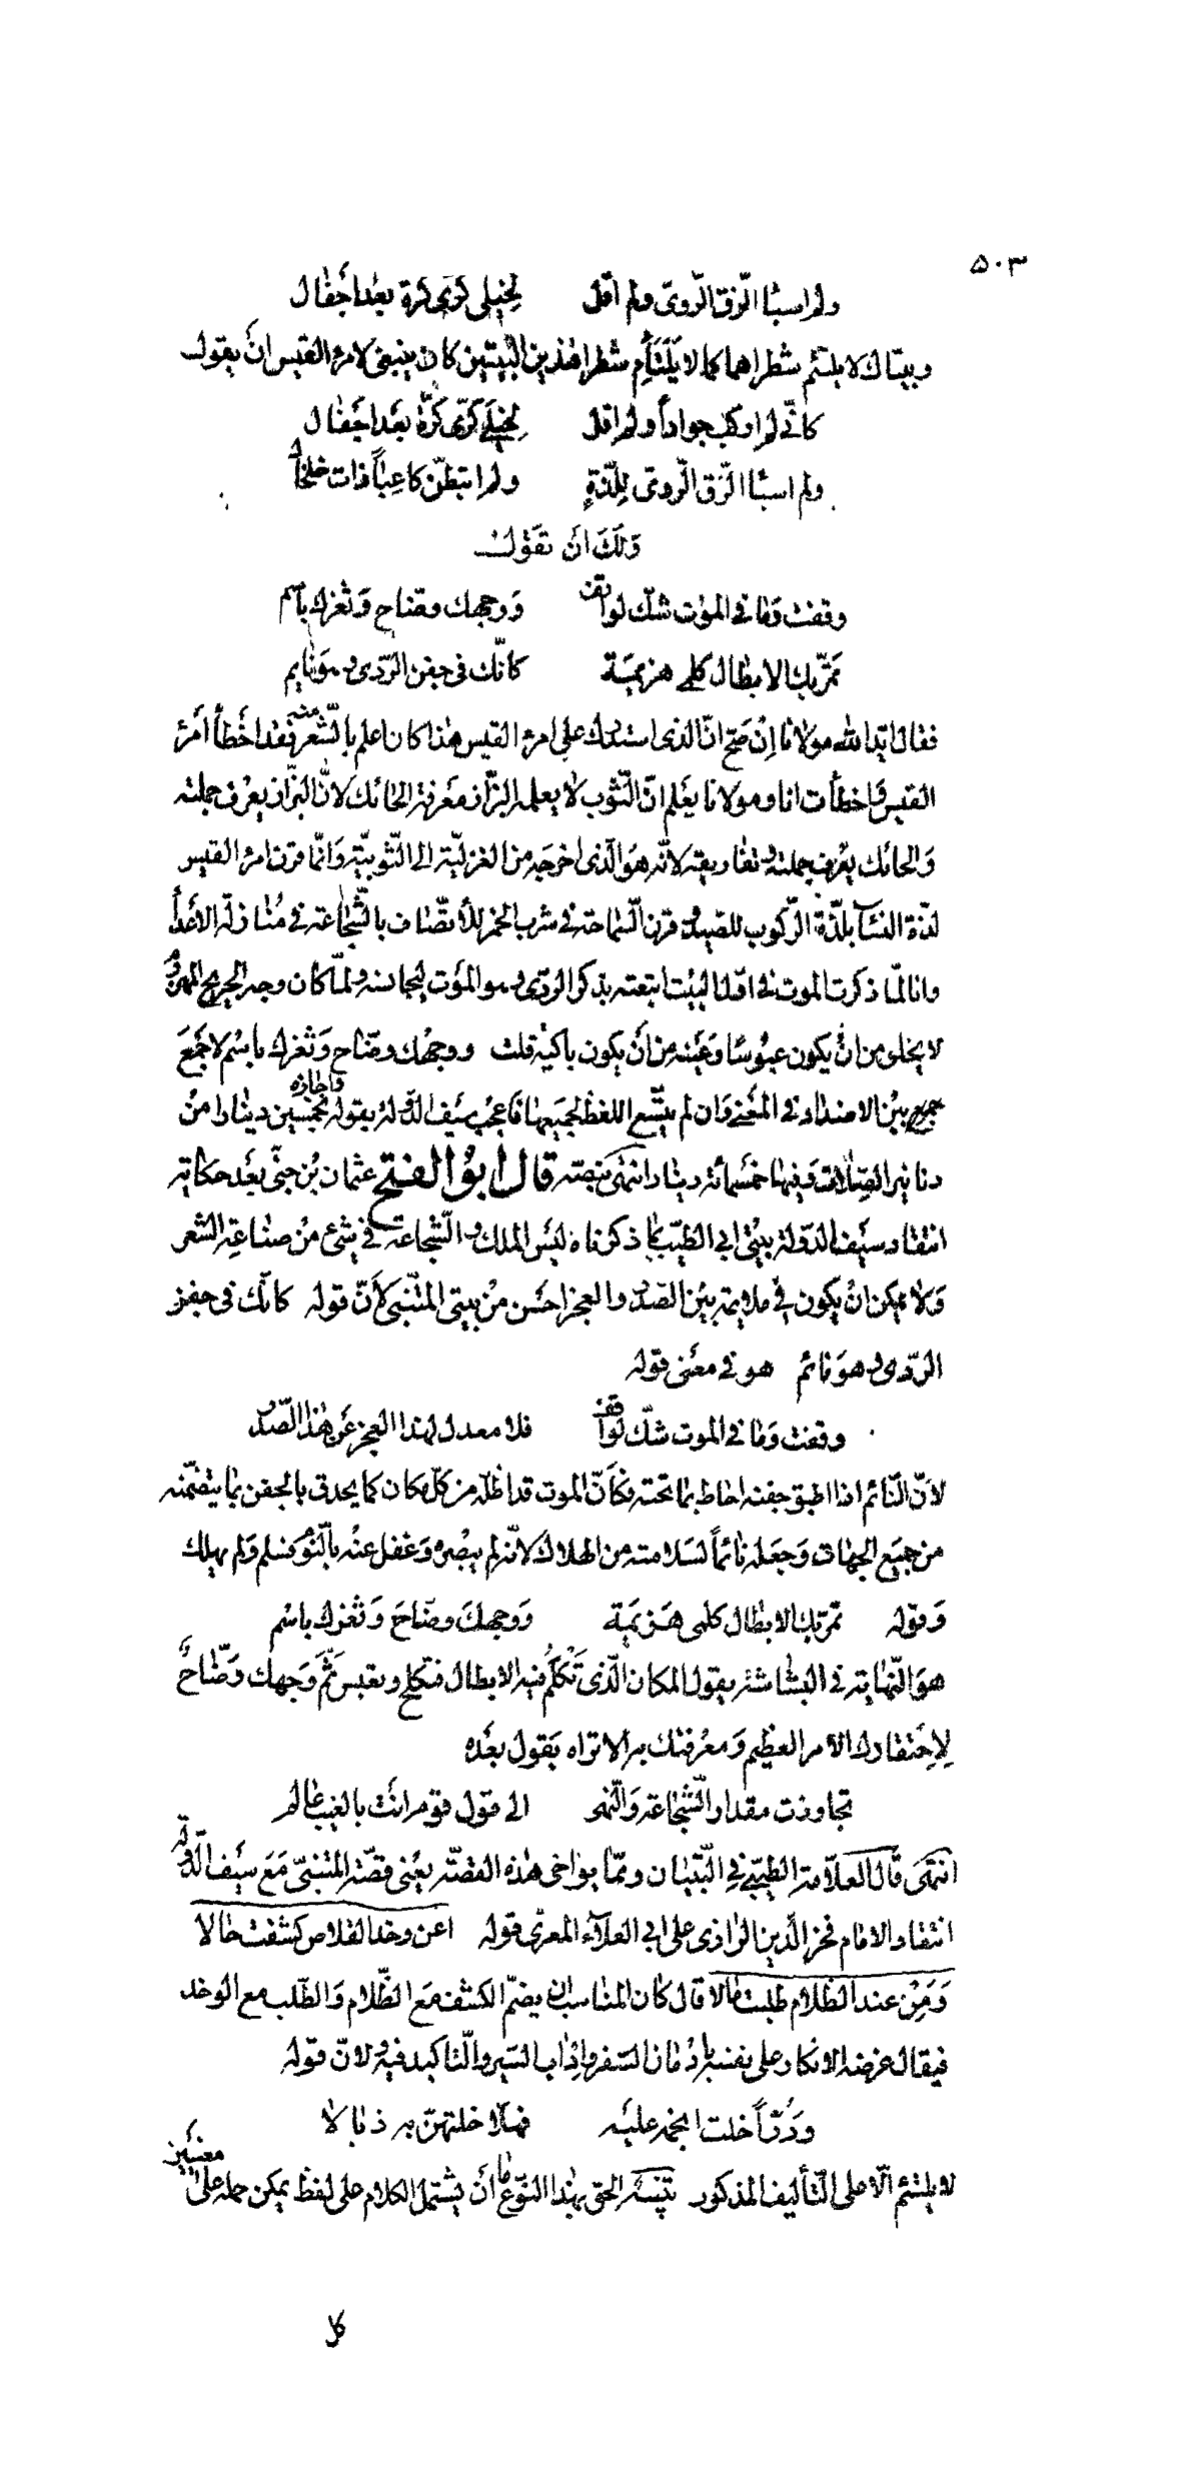 ٥٠٣
ولم اسبأ الزّق الرّويّ ولم اقل لخيلي كرّي كرة بعد اجفال
وبيتاك لا يلتئم شطراهما كما لا يلتأم شطرا هذين البيتين كان ينبغي لامرء القيس ان يقول
كانّي لم اركب جواداً ولم اقل لخيلي كرّي كرّة بعد اجفال
ولم اسبأ الزّق الرّويّ للذّةٍ ولم اتبطّن كاعباً ذات خلخال
وَلَكَ ان تقول
وقفت وما في الموت شكّ لواقف ووجهك وضّاح وثغرك باسم
تمرّ بك الابطال كلمى هزيمة كانّك في جفن الرّدى وهو نايم
فقال ايّد الله مولانا اِنْ صَحّ انّ الذي استدرك على امرء القيس هذا كان اعلم بالشّعر منه فقد اخطأ امرؤ
القيس واخطأت انا ومولانا يعلم انّ الثّوب لا يعلمه البزّاز معرفة الحائك لانّ البزّاز يعرف جملته
والحائك يعرف جملته وتفاريقه لانّه هو الّذي اخرجه من الغزليّة الى الثّوبيّة وانّما قرن امرء القيس
لذّة النسآء بلذّة الرّكوب للصيد وقرن السّماحة في شرب الخمر للأتّصاف بالشّجاعة في منازلة الاعداء
وانا لمّا ذكرت الموت في اوّل البيت اتبعته بذكر الردّى وهو الموت ليجانسه ولمّا كان وجه الجريح المهزوم
لا يخلو من ان يكون عبوسًا وعينه من أن يكون باكية قلت ووجهك وضّاح وثغرك باسم لاجمع
جمع بين الاضداد في المعنى وان لم يتّسع اللفظ لجميعها فاعجب سيف الدّولة بقوله فاجازه بخمسين دينارا من
دنانير الصّلات وفيها خمسمائة دينار انتهى بنصّه قال ابو الفتح عثمان بن جنّي بعد حكاية
انتقاد سيف الدّولة بيتي ابي الطيّب كما ذكرناه ليس الملك والشّجاعة في شئ من صناعة الشعر
ولا يمكن ان يكون في ملايمة بين الصّدر والعجز احسن من بيتي المتنبّي لأنّ قوله كانّك في جفن
الرّدى وهو نائم هو في معنى قوله
وقفت وما في الموت شكّ لواقف فلا معدل لهذا العجز عن هذا الصّدر
لأنّ النّائم اذا اطبق جفنه احاط بما تحته فكأنّ الموت قد اظلّه من كلّ مكان كما يحدق بالجفن بما يتضمّنه
من جميع الجهات وجعله نائماً لسلامته من الهلاك لانّه لم يبصره وغفل عنه بالنّوم فسلم ولم يهلك
وقوله تمرّ بك الابطال كلمى هزيمة ووجهك وضّاح وثغرك باسم
هو النّهاية في البشاشة يقول المكان الّذي تَكْلَمُ فيه الابطال فتكلح وتعبس ثَمّ وجهك وضّاحٌ
لِاحتقارك الأمر العظيم ومعرفتك به ألا تراه يقول بعده
تجاوزت مقدار الشّجاعة والنّهى الى قول قوم انت بالغيب عالم
انتهى قال العلامة الطيّبي في التّبيان وممّا يواخى هذه القصّة يعني قصّة المتنبيّ مع سيف الدّولة
انتقاد الامام فخر الدّين الرازي على ابي العلآء المعري قوله اعن وخد القلاص كشفت حالا
ومن عند الظّلام طلبت مالا قال كان المناسب ان يضمّ الكشف مع الظّلام والطّلب مع الوخد
فيقال غرضه الانكار على نفسه بإدمان السّفر وإذاب السّير والتّاكيد فيه ولانّ قوله
ودرّاً خلت انجمه عليه فهلّا خلتهنّ به ذبالا
لا يلتئم الّا على التّأليف المذكور تنبيه الحق بهذا النوع ما أن يشتمل الكلام على لفظ يمكن حمله على معنيين
كل